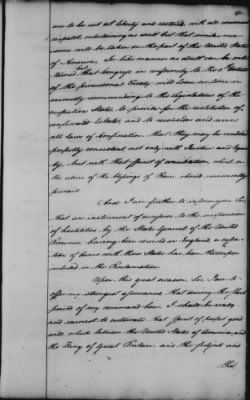 are to be set at Liberty and restored, with all convenient
dispatch, entertaining no doubt but that similar mea-
sures will be taken on the part of the United States
of America, In like manner no doubt can be enter-
tained that Congress in conformity to the
of the provisional Treaty will lose no time in
earnestly recommending to the Legislatures of the
respective States, to provide for the restitution of
confiscated Estates, and to reconsider and revise
all Laws of Confiscation that they may be rendered
perfectly consistent not only with Justice and Equi-
ty, but with that spirit of conciliation which on
the return of the blessings of Peace should universally
prevail
And I am further to inform you Sir
that an instrument of accession to the suspension
of hostilities by the States General of the United
Provinces having been received in England a cessa-
tion of Arms with those States has been thereupon
included in the Proclamation.
Upon this great occasion Sir, I am to
offer my strongest assurances, that during the short
period of my command here, I shall be ready
and earnest to cultivate that spirit of perfect good
will, which between the United States of America, and
the King of Great Britain and the subjects and